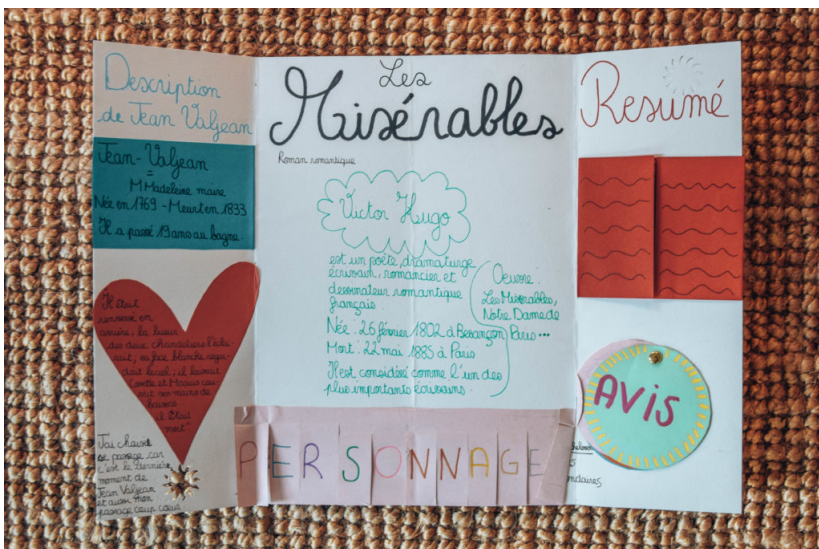 Description
de Jean Valjean
Jean-Valjean
=
M Madeleine maire
Née en 1769 - Meurt en 1833
Il a passé 19 ans au bagne.
Il était
renversé en
arrière; la lueur
des deux chandeliers l'éclai
rait; sa face blanche regar
dait le ciel; il laissait
Cosette et Marius cou
vrir ses mains de
baisers
il était
mort"
J'ai choisi
ce passage car
c'est le dernière
moment de
Jean Valjean
et aussi mon
passage coup cœur
Les
Misérables
Roman romantique
Victor Hugo
est un poète, dramaturge
écrivain, romancier et
dessinateur romantique
français.
Née : 26 février 1802 à Besançon
Mort : 22 mai 1885 à Paris
Il est considéré comme l'un des
plus importants écrivains.
Oeuvre :
Les Misérables,
Notre Dame de
Paris ...
PERSONNAGE
Resumé
AVIS
ndaires